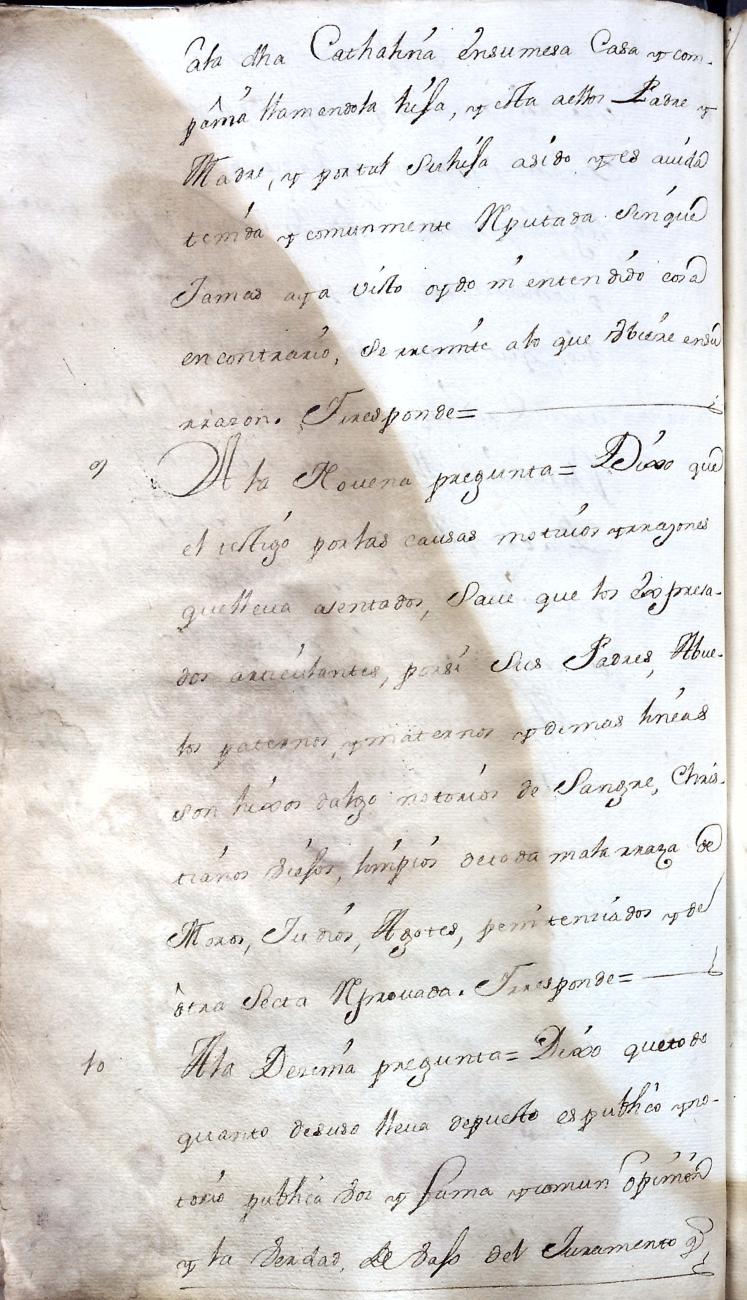 ala dha Cathalina ensumesa Casa y com-
pañia llamandola hisa, y esta aellos Padre y
Madre, y portal Suhisa asido y es auida
tenida y comunmente Rputada Sinque
Jamas aya visto oydo ni entendido cosa
encontrario, Se rremite alo que dbiere ensu
rrazon. Yrresponde=
9 Ala Novena pregunta= Dixo que
el testigo porlas causas motiuos yrrazones
quelleua asentados, Saue que los Expresa-
dos articulantes, porsi Sus Padres, Abue-
los paternos, ymaternos ydemas lineas
son hixos dalgo notorios de Sangre, Chris-
tianos viejos, limpios detoda mala rraza de
Moros, Judios, Agotes, penitenziados y de
otra Secta Rprouada. Yrresponde=
10 Ala Dezima pregunta= Dixo quetodo
quanto desuso lleua depuesto es publico yno-
torio publica voz y fama ycomun opinion
y la verdad, de vaso del Juramento q